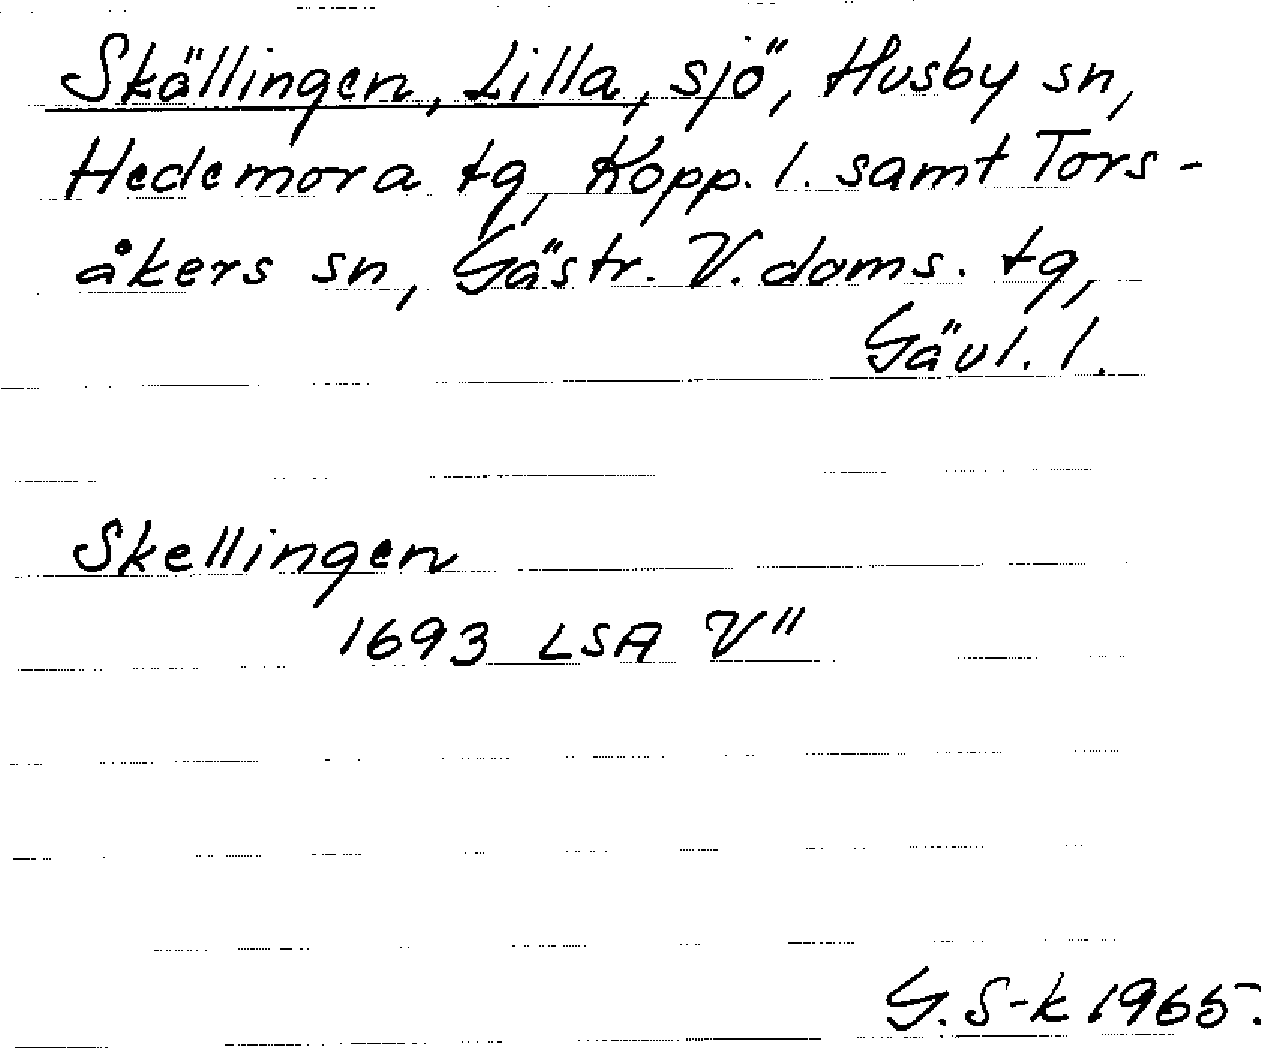 Skällingen, Lilla, sjö, Husby sn,
Hedemora tg, Kopp. l. samt Tors-
åkers sn, Gästr. V. doms. tg,
Gävl. l.
Skellingen
1693 LSA V"
G. S-k 1965.